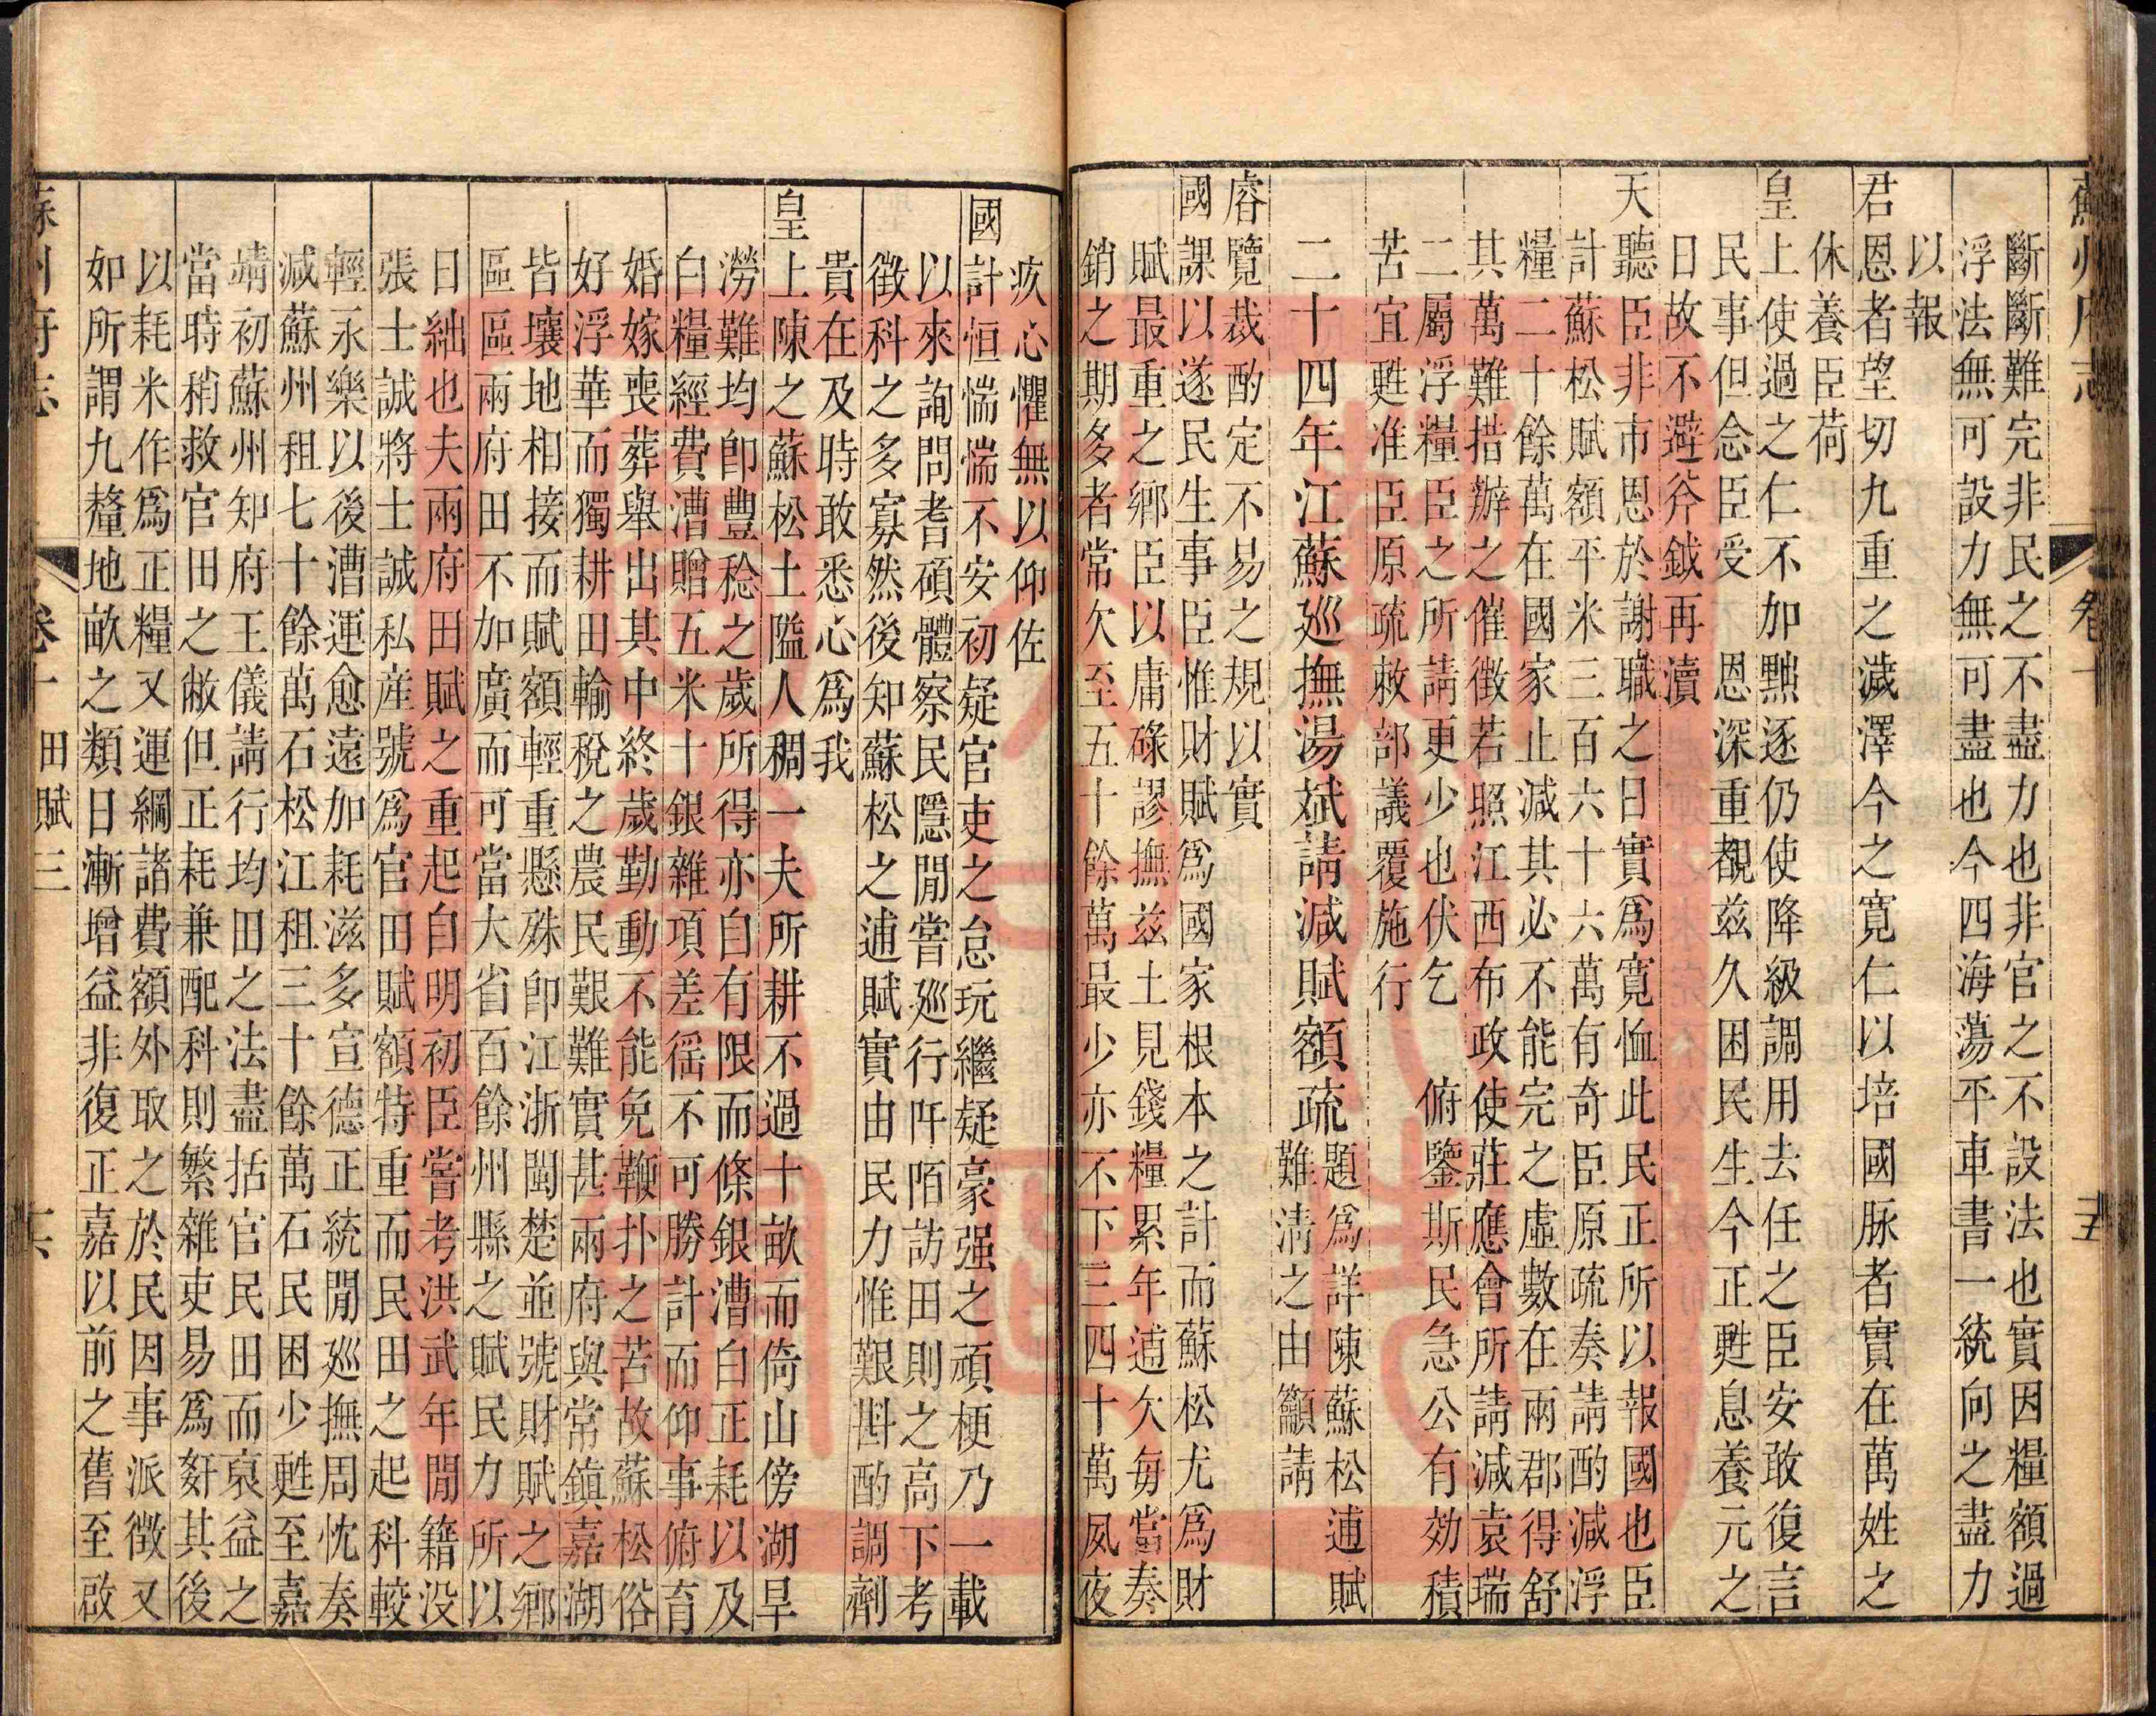 蘇州府志
卷十
斷斷難完非民之不盡力也非官之不設法也實因糧額過
浮法無可設力無可盡也今四海蕩平車書一統向之盡力
以報
君恩者望切九重之濊澤今之寬仁以培國脉者實在萬姓之
休養臣荷
皇上使過之仁不加黜逐仍使降級調用去任之臣安敢復言
民事但念臣受　恩深重覩兹久困民生今正甦息養元之
日故不避斧鉞再瀆
天聽臣非市恩於謝職之日實爲寬恤此民正所以報國也臣
計蘇松賦額平米三百六十六萬有奇臣原疏奏請酌減浮
糧二十餘萬在國家止減其必不能完之虛數在兩郡得舒
其萬難措辦之催徵若照江西布政使莊應會所請減袁瑞
二屬浮糧臣之所請更少也伏乞　俯鑒斯民急公有効積
苦宜甦准臣原疏敕部議覆施行
二十四年江蘇巡撫湯斌請減賦額疏
題爲詳陳蘇松逋賦
難淸之由籲請
睿覽裁酌定不易之規以實
國課以遂民生事臣惟財賦爲國家根本之計而蘇松尤爲財
賦最重之鄉臣以庸碌謬撫兹土見錢糧累年逋欠每當奏
銷之期多者常欠至五十餘萬最少亦不下三四十萬夙夜
疚心懼無以仰佐
國計恒惴惴不安初疑官吏之怠玩繼疑豪强之頑梗乃一載
以來詢問耆碩體察民隱閒嘗巡行阡陌訪田則之高下考
徵科之多寡然後知蘇松之逋賦實由民力惟艱斟酌調劑
貴在及時敢悉心爲我
皇上陳之蘇松土隘人稠一夫所耕不過十畝而倚山傍湖旱
澇難均卽豐稔之歲所得亦自有限而條銀漕白正耗以及
白糧經費漕贈五米十銀雜項差徭不可勝計而仰事俯育
婚嫁喪葬舉出其中終歲勤動不能免鞭扑之苦故蘇松俗
好浮華而獨耕田輸稅之農民艱難實甚兩府與常鎮嘉湖
皆壤地相接而賦額輕重懸殊卽江浙閩楚並號財賦之鄉
區區兩府田不加廣而可當大省百餘州縣之賦民力所以
日絀也夫兩府田賦之重起自明初臣嘗考洪武年閒籍没
張士誠將士誠私產號爲官田賦額特重而民田之起科較
輕永樂以後漕運愈遠加耗滋多宣德正統閒巡撫周忱奏
減蘇州租七十餘萬石松江租三十餘萬石民困少甦至嘉
靖初蘇州知府王儀請行均田之法盡括官民田而裒益之
當時稍救官田之敝但正耗兼配科則繁雜吏易爲姧其後
以耗米作爲正糧又運綱諸費額外取之於民因事派徵又
如所謂九釐地畝之類日漸增益非復正嘉以前之舊至啟
蘇州府志
卷十　田賦三